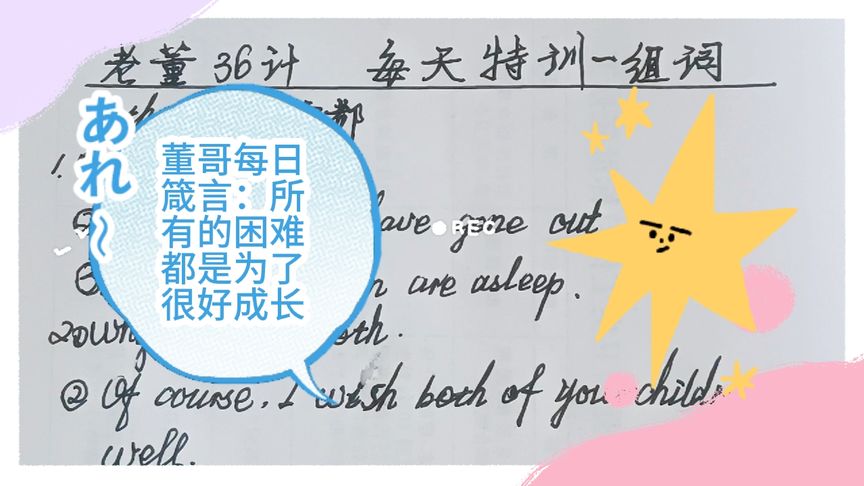 老董36计 每天特训一组词
都
あれ~
董哥每日
箴言：所
有的困难
都是为了
很好成长
1.
ave gone out
REC
are asleep.
2
oth.
② Of course, I wish both of you child
well.